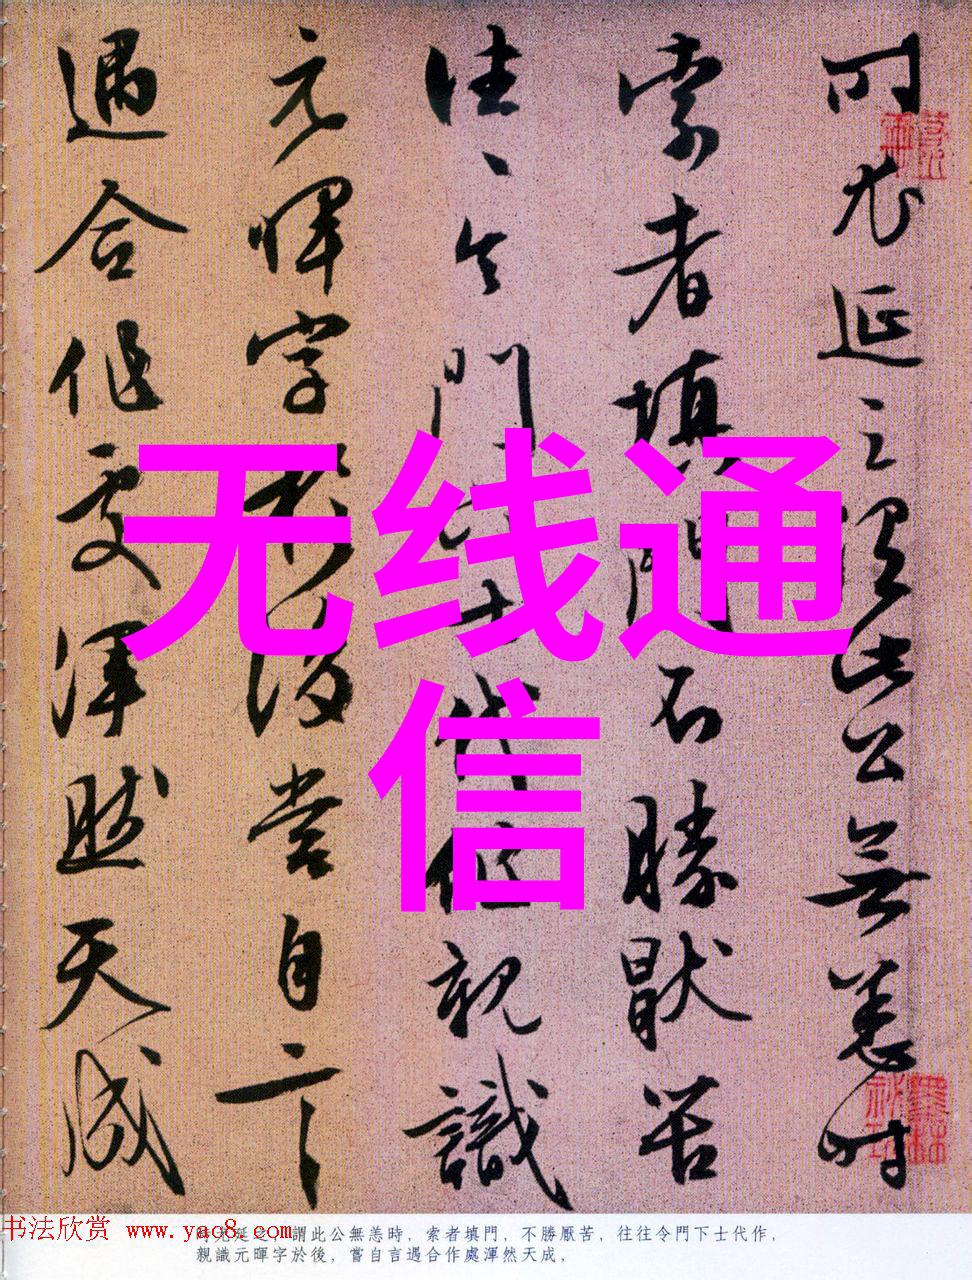 所尤延之謂此公無恙時
索者填門不勝厭苦
往往令門下士代作親識
元暉字於後嘗自言
遇合作處渾然天成
无线通
信
书法欣赏 www.yac8.com
時尤延之 謂此公無恙時，索者填門，不勝厭苦，往往令門下士代作，
親識元暉字於後，嘗自言遇合作處渾然天成，